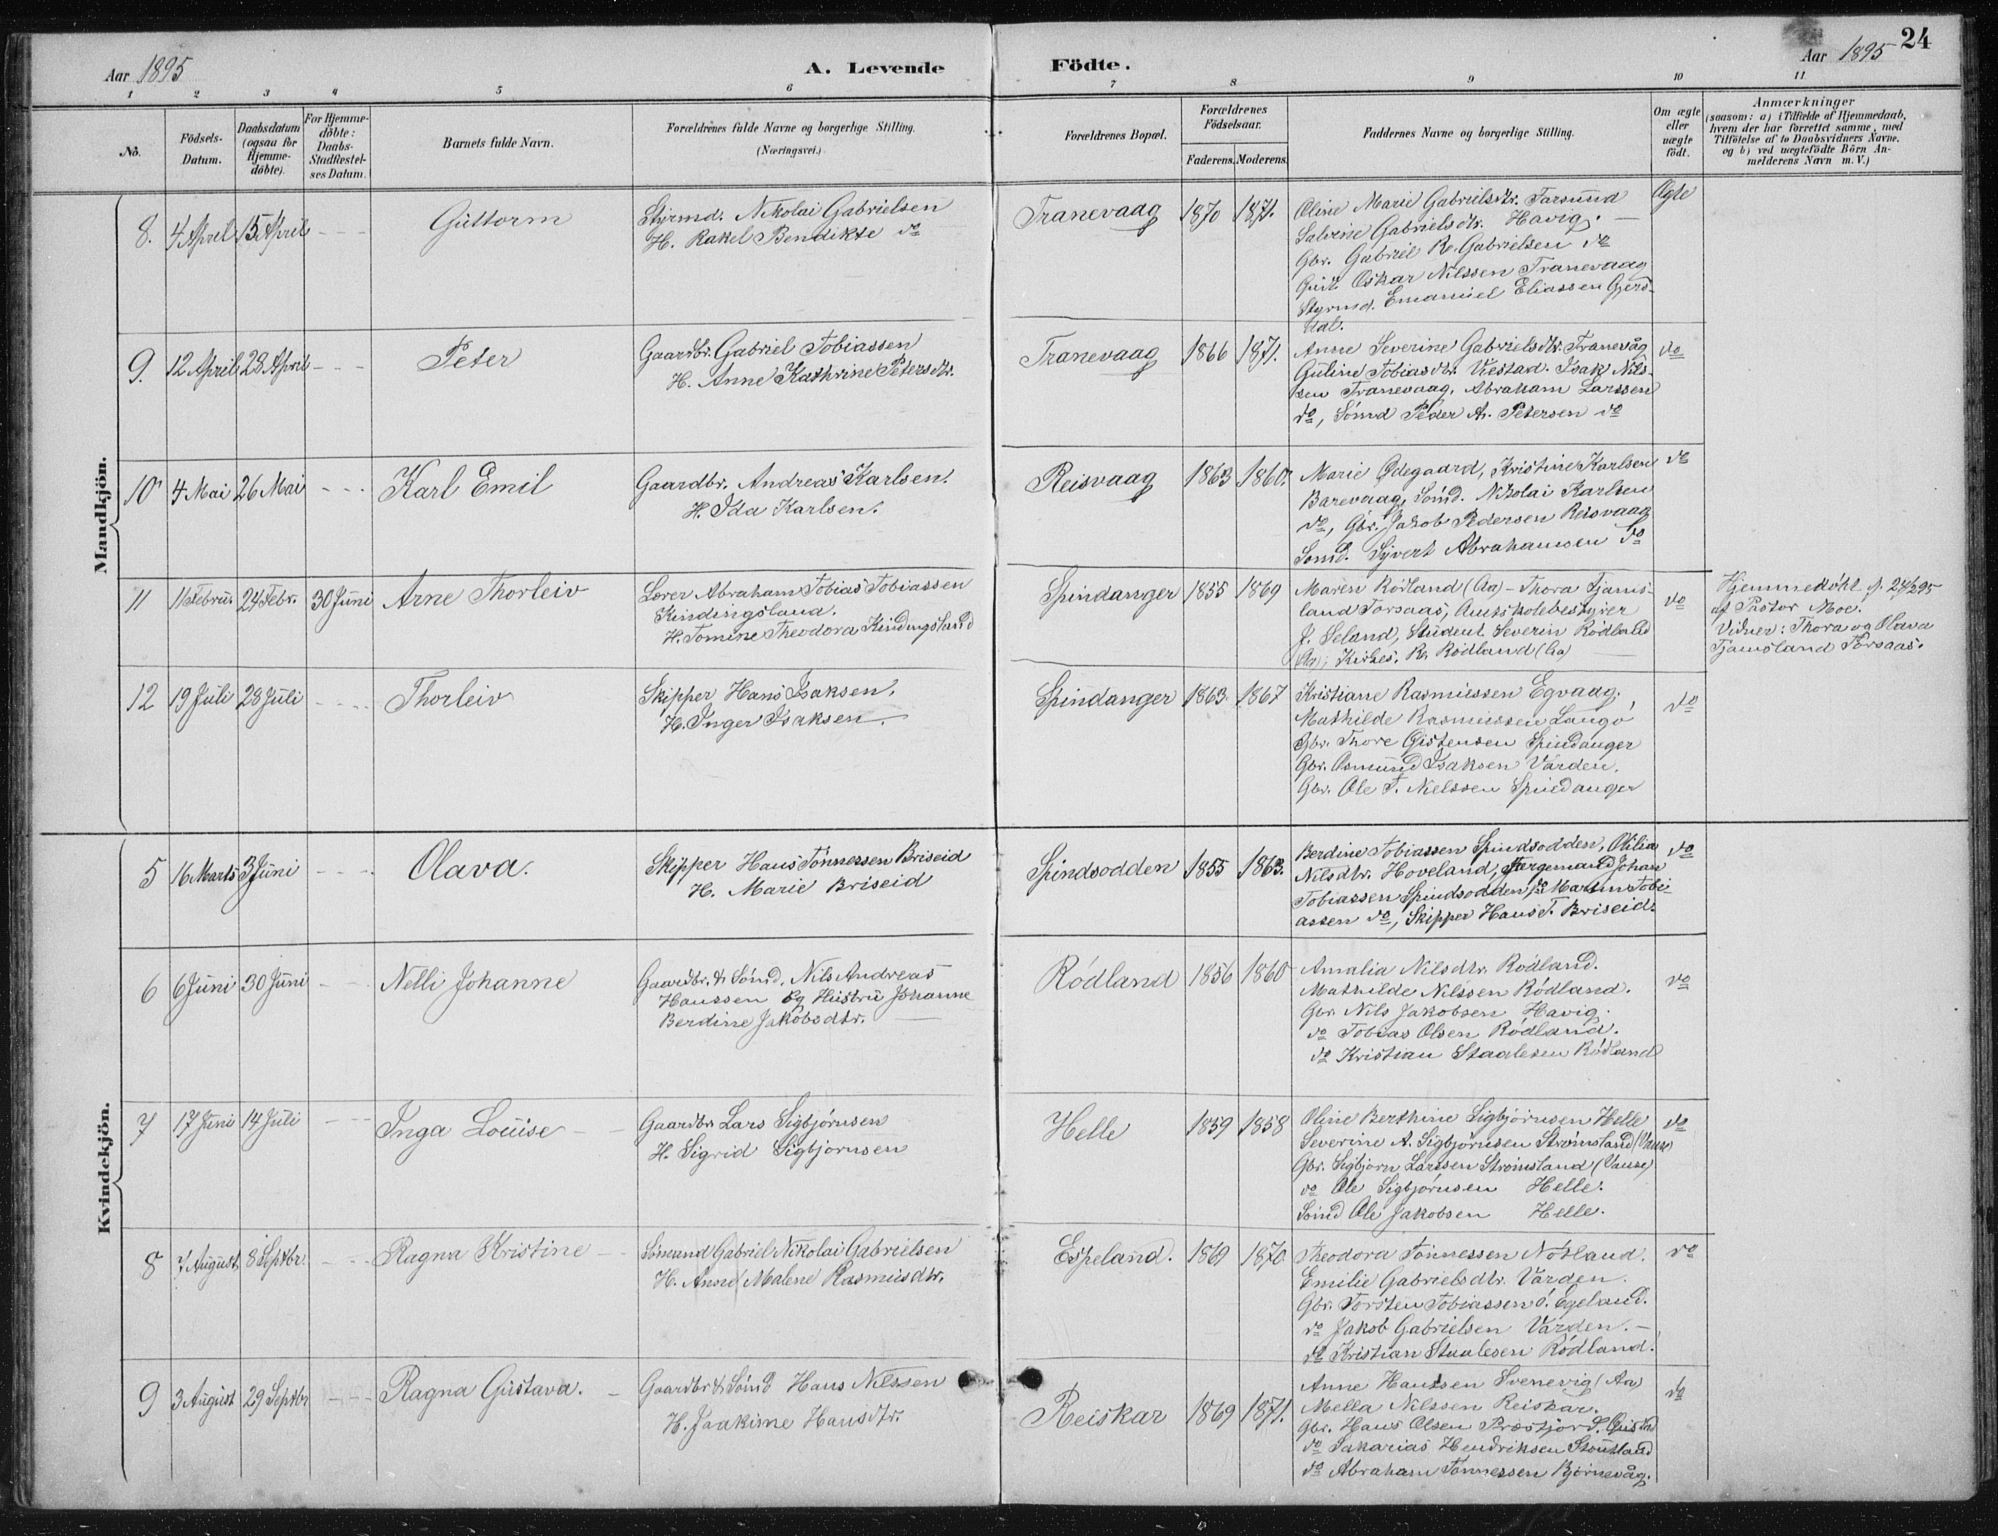 24
Aar 1895
A. Levende Födte.
Aar 1895
1 2 3 4 5 6 7 8 9 10 11
No.
Födsels-Datum.
Daabsdatum (ogsaa for Hjemme-döbte).
For Hjemme-döbte: Daabs-Stadfæstel-ses Datum.
Barnets fulde Navn.
Forældrenes fulde Navne og borgerlige Stilling. (Næringsvei.)
Forældrenes Bopæl.
Forældrenes Födselsaar.
Faderens. Moderens.
Faddernes Navne og borgerlige Stilling.
Om ægte eller uægte födt.
Anmærkninger
(saasom: a) i Tilfælde af Hjemmedaab,
hvem der har forrettet samme, med
Tilföielse af to Daabsvidners Navne,
og b) ved uægtefödte Börn An-
melderens Navn m. V.)
Mandkjön.
8. 4 April 15 April - - - Guttorm
Styrmd. Nikolai Gabrielsen
H. Rakel Bendikte do
Tranevaag 1870 1871.
Oline Marie Gabrielsdtr. Farsund
Salvine Gabrielsdtr. Havig. —
Gbr. Gabriel R. Gabrielsen do
Oskar Nilssen Tranevaag
Styrmd. Emanuel Eliassen Gjers-
dal.
Ægte
9. 12 April 28 April - - - Peter
Gaardbr. Gabriel Tobiassen
H. Anne Kathrine Petersdtr.
Tranevaag 1866 1871.
Anne Severine Gabrielsdtr. Tranevåg
Guline Tobiasdtr. Vaestad. Isak Nils-
sen Tranevaag, Abraham Larssen
do, Sömd Peder A. Petersen do
do
10 4 Mai 26 Mai - - - Karl Emil
Gaardbr. Andreas Karlsen.
H. Ida Karlsen.
Reisvaag 1863 1860.
Marie Ødegaard, Kristine Karlsen
Barevaag, Sömd. Nikolai Karlsen
do, Gbr. Jakob Pedersen Reisvaag
Sömd. Syvert Abrahamsen do
do
11 11 Febru. 24 Febr. 30 Juni Arne Thorleiv
Lærer Abraham Tobias Tobiassen
Kindingsland.
H. Tomine Theodora Kindingsland
Spindanger 1855 1869
Maren Rödland (Aa) - Thora Tjams-
land Forsaas, Amtsskolebestyrer
J. Seland, Student Severin Rödland
(Aa), Kirkes. R. Rödland (Aa)
do
Hjemmedöbt d. 24/2 95
af Pastor Moe.
Vidner: Thora og Olava
Tjamsland Forsaas.
12 19 Juli 28 Juli - - - Thorleiv
Skipper Hans Isaksen.
H. Inger Isaksen.
Spindanger 1863 1867
Kristiane Rasmussen Egvaag.
Mathilde Rasmussen Langö
Gbr. Thore Gistensen Spindanger
Gbr. Osmund Isaksen Varden.
Gbr. Ole T. Nielssen Spindanger
do
Kvindekjön.
5 16 Marts 3 Juni - - - Olava.
Skipper Hans Tönnessen Briseid
H. Marie Briseid
Spindsodden 1855 1863.
Berdine Tobiassen Spindsodden, Otilia
Nilsdtr. Hoveland, Johan
Tobiassen Spindsodden, do Martin Tobi-
assen do, Skipper Hans T. Briseid.
do
6 6 Juni 30 Juni - - Nelli Johanne
Gaardbr. & Sömd. Nils Andreas
Hanssen og Hustru Johanne
Berdine Jakobsdtr. —
Rödland 1856 1860
Amalia Nilsdtr. Rödland.
Mathilde Nilssen Rödland.
Gbr. Nils Jakobsen Havig.
do Tobias Olsen Rödland.
do Kristian Staalesen Rödland
do
7 17 Juni 14 Juli - - - Inga Louise
Gaardbr Lars Sigbjörnsen
H. Sigrid Sigbjörnsen
Helle 1859 1858
Oline Berthine Sigbjörnsen Helle
Severine A. Sigbjörnsen Strömsland (Vanse)
Gbr. Sigbjörn Larssen Strömsland (Vanse)
do Ole Sigbjörnsen Helle.
Sömd Ole Jakobsen Helle.
do
8 7 August 8 Septbr. - - - Ragna Kristine
Sömand Gabriel Nikolai Gabrielsen
H. Anne Malene Rasmusdtr.
Espeland. 1869 1870
Theodora Tönnessen Nötland.
Emilie Gabrielsdtr. Varden.
Gbr. Torsten Tobiassen ö. Egeland.
do Jakob Gabrielsen Varden. —
do Kristian Staalesen Rödland.
do
9 3 August 29 Septbr - - - Ragna Gustava.
Gaardbr & Sömd Hans Nilssen
H. Joakime Hansdtr.
Reiskar 1869 1871.
Anne Hanssen Svenevig (Aa)
Mella Nilssen Reiskar.
Gbr. Hans Olsen
do Sakarias Hendriksen
do Abraham Tönnessen Bjørnevåg.
do